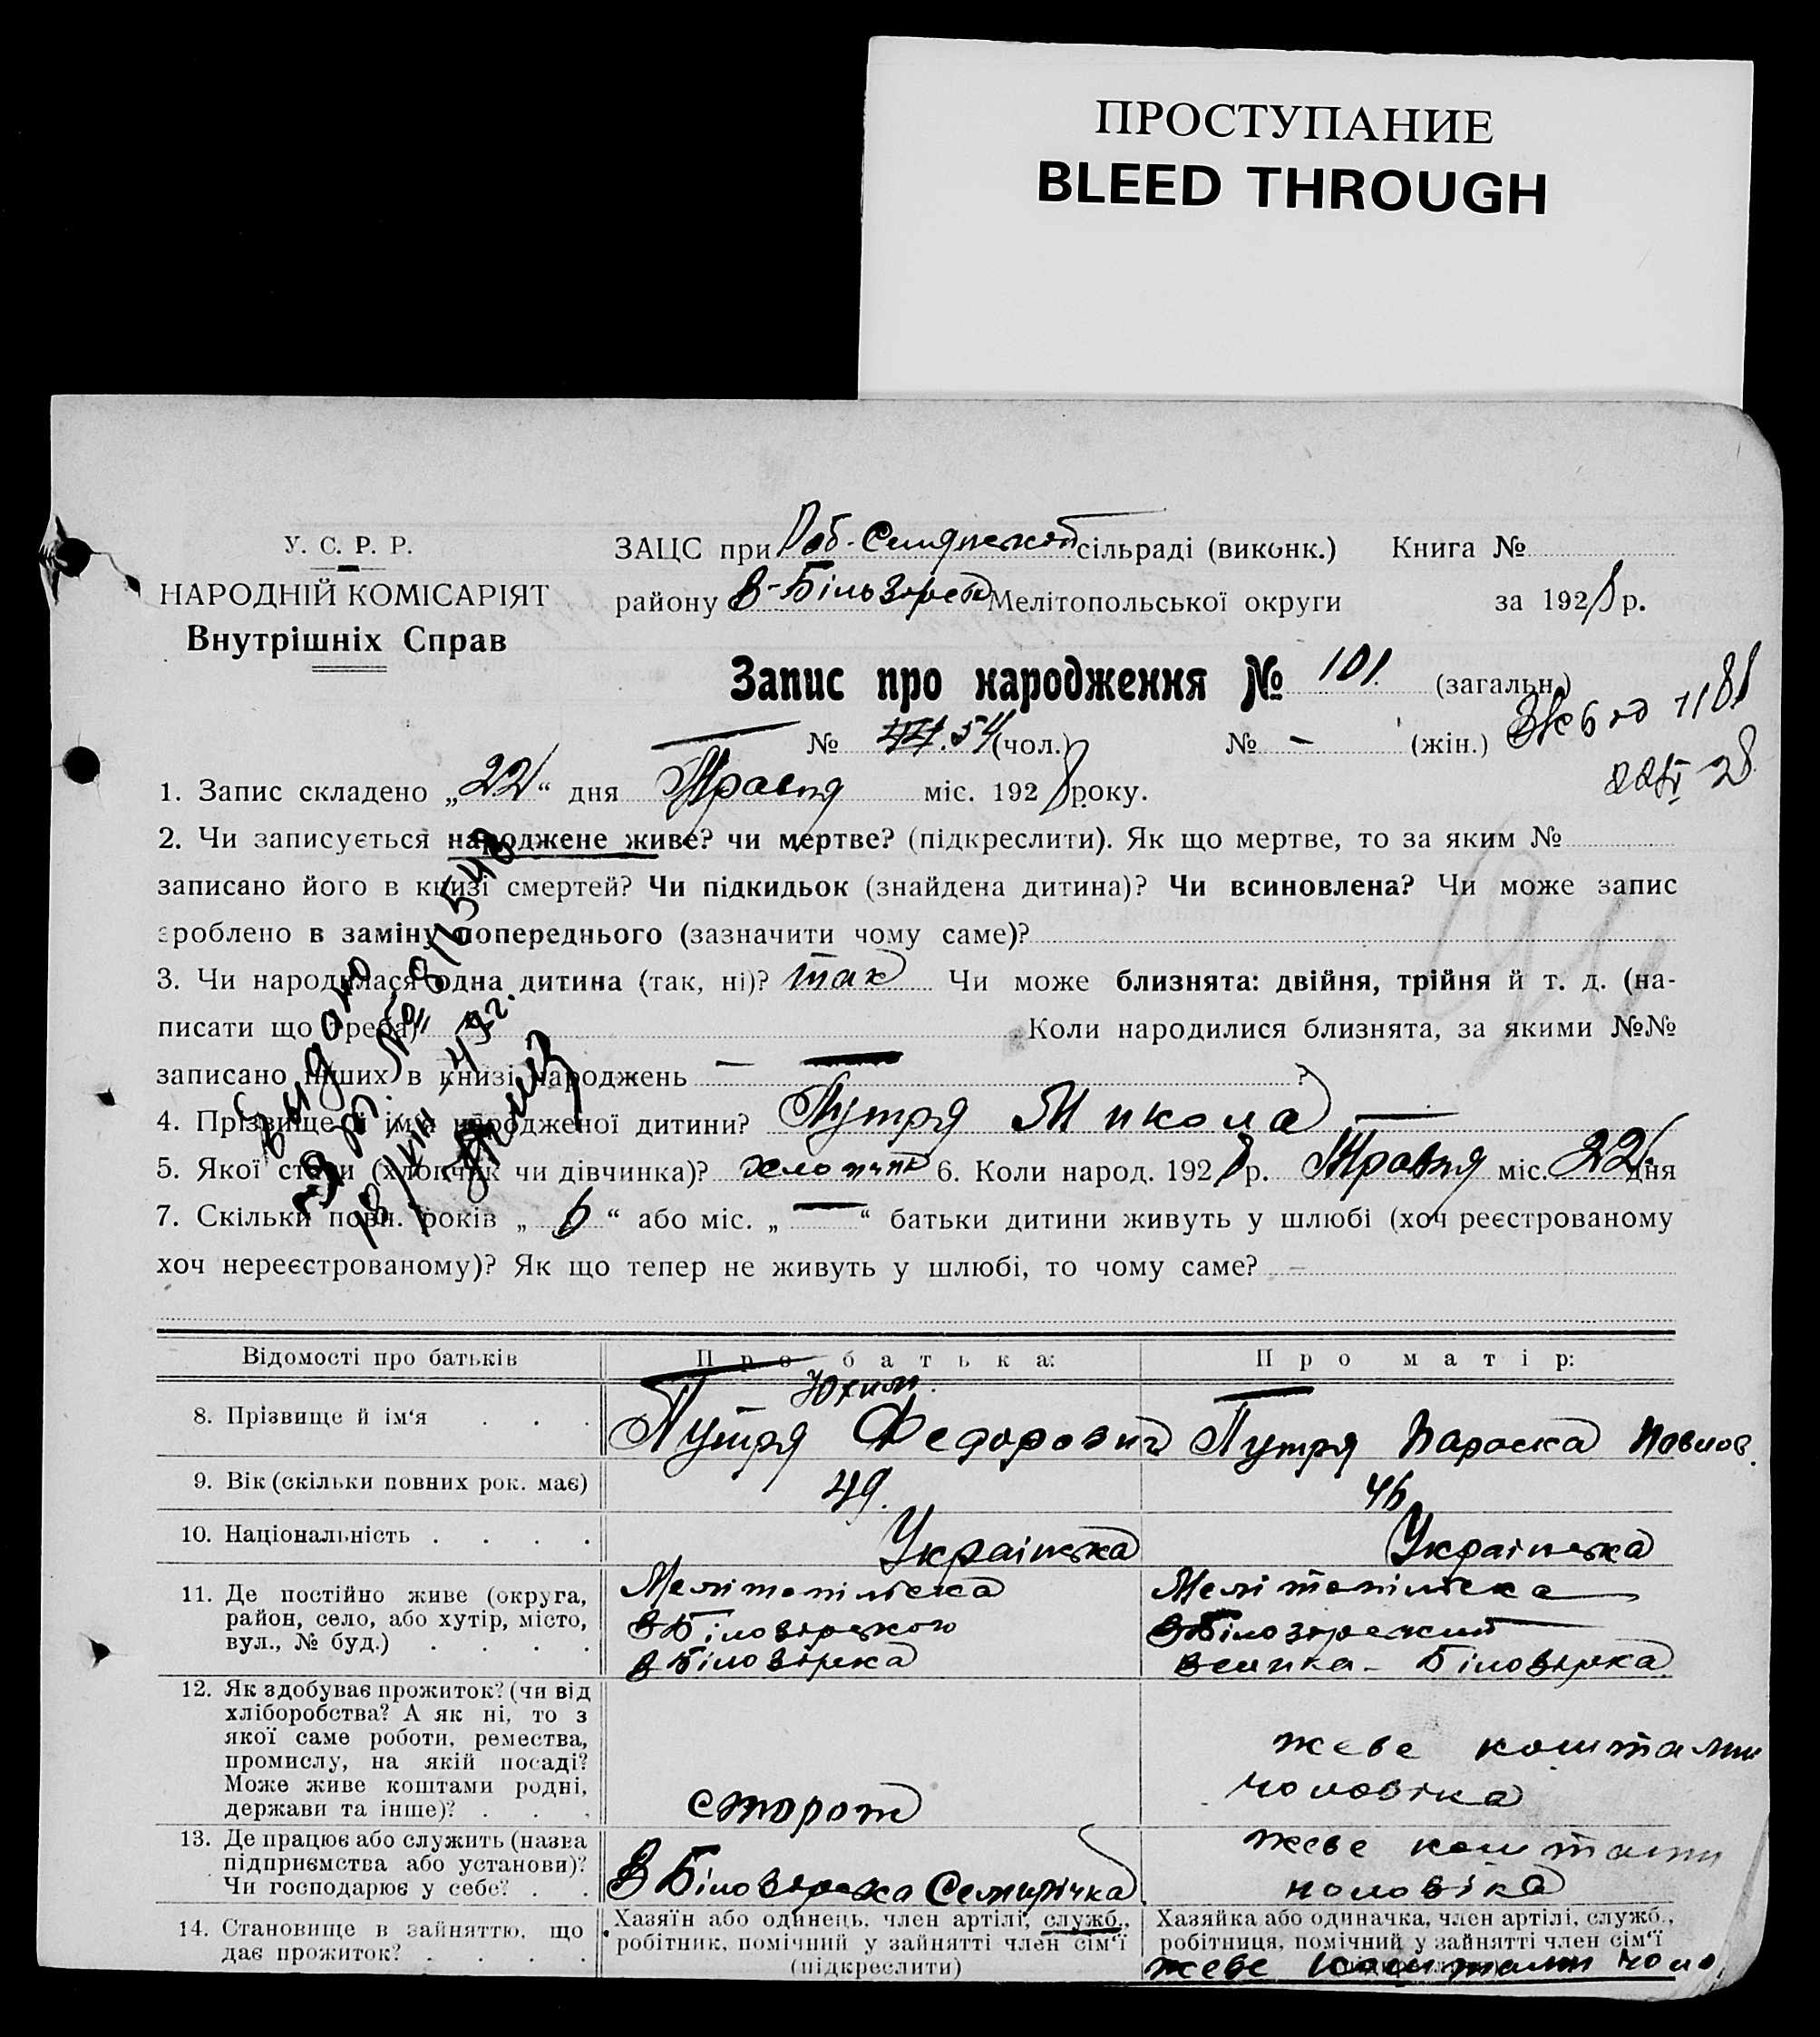 ПРОСТУПАНИЕ
BLEED THROUGH
У. С. Р. Р.
НАРОДНІЙ КОМІСАРІЯТ
Внутрішніх Справ
ЗАЦС при Роб- сільраді (виконк.) Книга №
району В-Більзорск Мелітопольської округи за 1928 р.
Запис про народження № 101. (загальн.)
№ 54 (чол.) № – (жін.)
1. Запис складено „22“ дня Травня міс. 1928 року.
2. Чи записується народжене живе? чи мертве? (підкреслити). Як що мертве, то за яким №
записано його в книзі смертей? Чи підкидьок (знайдена дитина)? Чи всиновлена? Чи може запис
зроблено в заміну попереднього (зазначити чому саме)?
3. Чи народилася одна дитина (так, ні)? так Чи може близнята: двійня, трійня й т. д. (на-
писати що треба) Коли народилися близнята, за якими №№
записано інших в книзі народжень — ?
4. Прізвище й ім'я народженої дитини? Путря Микола
5. Якої статі (хлопчик чи дівчинка)? хлопчик 6. Коли народ. 1928 р. Травня міс. 22 дня
7. Скільки повн. років „ 6 “ або міс. „ — “ батьки дитини живуть у шлюбі (хоч реєстрованому
хоч нереєстрованому)? Як що тепер не живуть у шлюбі, то чому саме? –
Видано
Відомості про батьків Про батька: Про матір:
Юхим.
8. Прізвище й ім'я Путря Федорович Путря Параска Павлов.
9. Вік (скільки повних рок. має) 49. 46
10. Національність Українська Українська
11. Де постійно живе (округа, район, село, або хутір, місто, вул., № буд.)
Мелітопільска Мелітопільска
В Білозірского В Білозірский
В Білозірка Велика- Білозірка
12. Як здобуває прожиток? (чи від
хліборобства? А як ні, то з
якої саме роботи, ремества,
промислу, на якій посаді?
Може живе коштами родні,
держави та інше)?
сторож
жеве коштами
чоловіка
13. Де працює або служить (назва
підприємства або установи)?
Чи господарює у себе?
В Білозірска Семирічка
жеве коштами
чоловіка
14. Становище в зайняттю, що
дає прожиток?
Хазяїн або одинець, член артілі, служб.,
робітник, помічний у зайнятті член сім'ї
(підкреслити)
Хазяйка або одиначка, член артілі, служб.,
робітниця, помічний у зайнятті член сім'ї
жеве коштами чоло